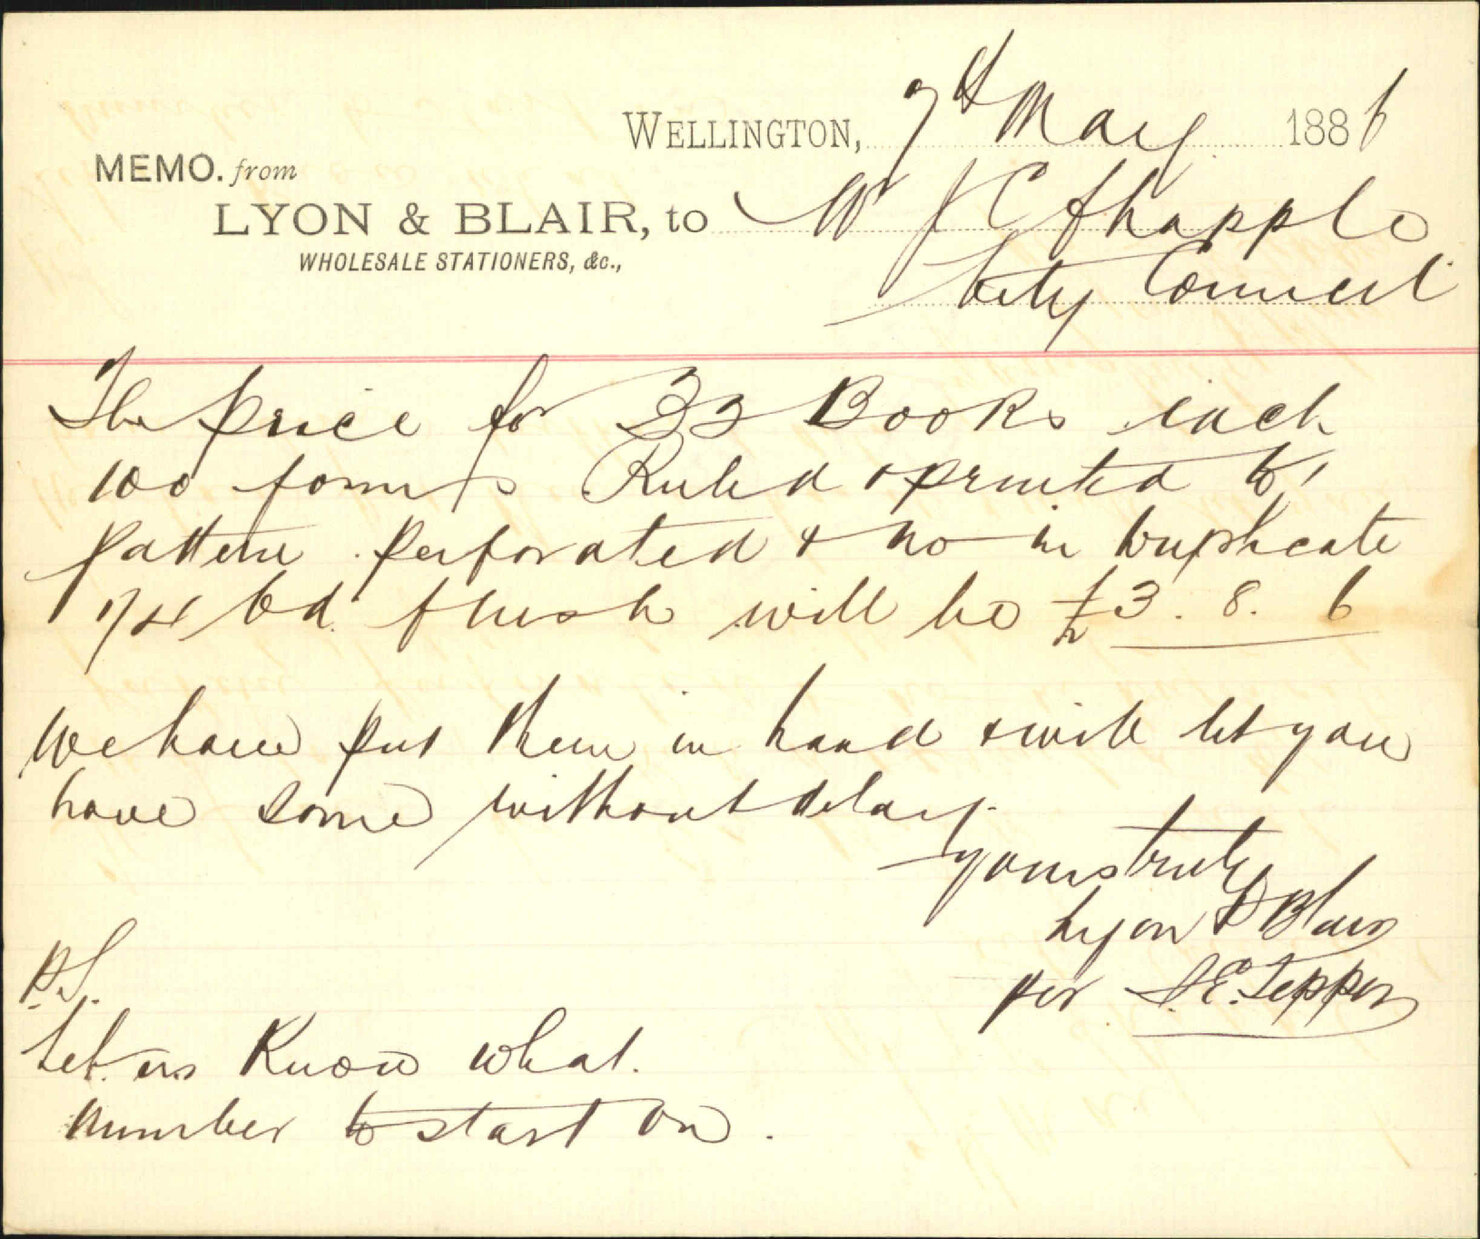 WELLINGTON, 7th May 1886
MEMO. from
LYON & BLAIR, to Mr J C Chapple
WHOLESALE STATIONERS, &c.,
City Council
The price for 33 Books each
100 forms Ruled & printed to
pattern perforated & no in duplicate
1/4 bd. flush will be £3. 8. 6
we have put them in hand & will let you
have some without delay.
yours truly
Lyon & Blair
per E. Tepper
P.S.
Let us Know what
number to start on.